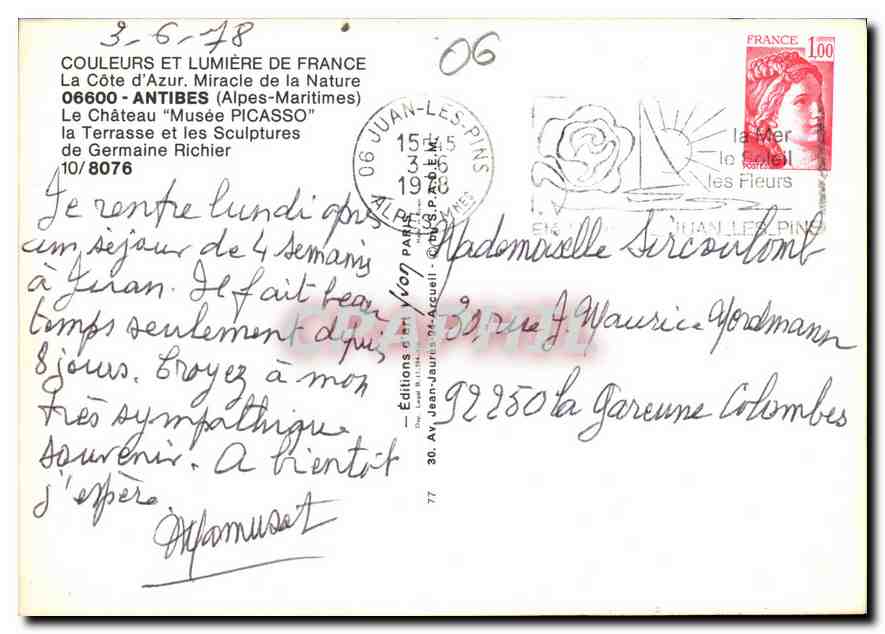 3-6-78
06
COULEURS ET LUMIÈRE DE FRANCE
La Côte d'Azur. Miracle de la Nature
06600 - ANTIBES (Alpes-Maritimes)
Le Château "Musée PICASSO"
la Terrasse et les Sculptures
de Germaine Richier
10/8076
Je rentre lundi après
un séjour de 4 semaines
à Juan. Il fait beau
temps seulement depuis
8 jours. Croyez à mon
très sympathique
souvenir. A bientôt
j'espère.
06 JUAN-LES-PINS
15H45
3-6
1978
ALPES MMES
la Mer
le Soleil
les Fleurs
JUAN-LES-PINS
FRANCE 1,00
POSTES
— Éditions d'art Yvon PARIS
30. Av. Jean-Jaurès 94-Arcueil - © by S.P.A.D.E.M.
77
Mademoiselle
30, rue J. Maurice Nordmann
92250 la Garenne Colombes
CPAPHIL